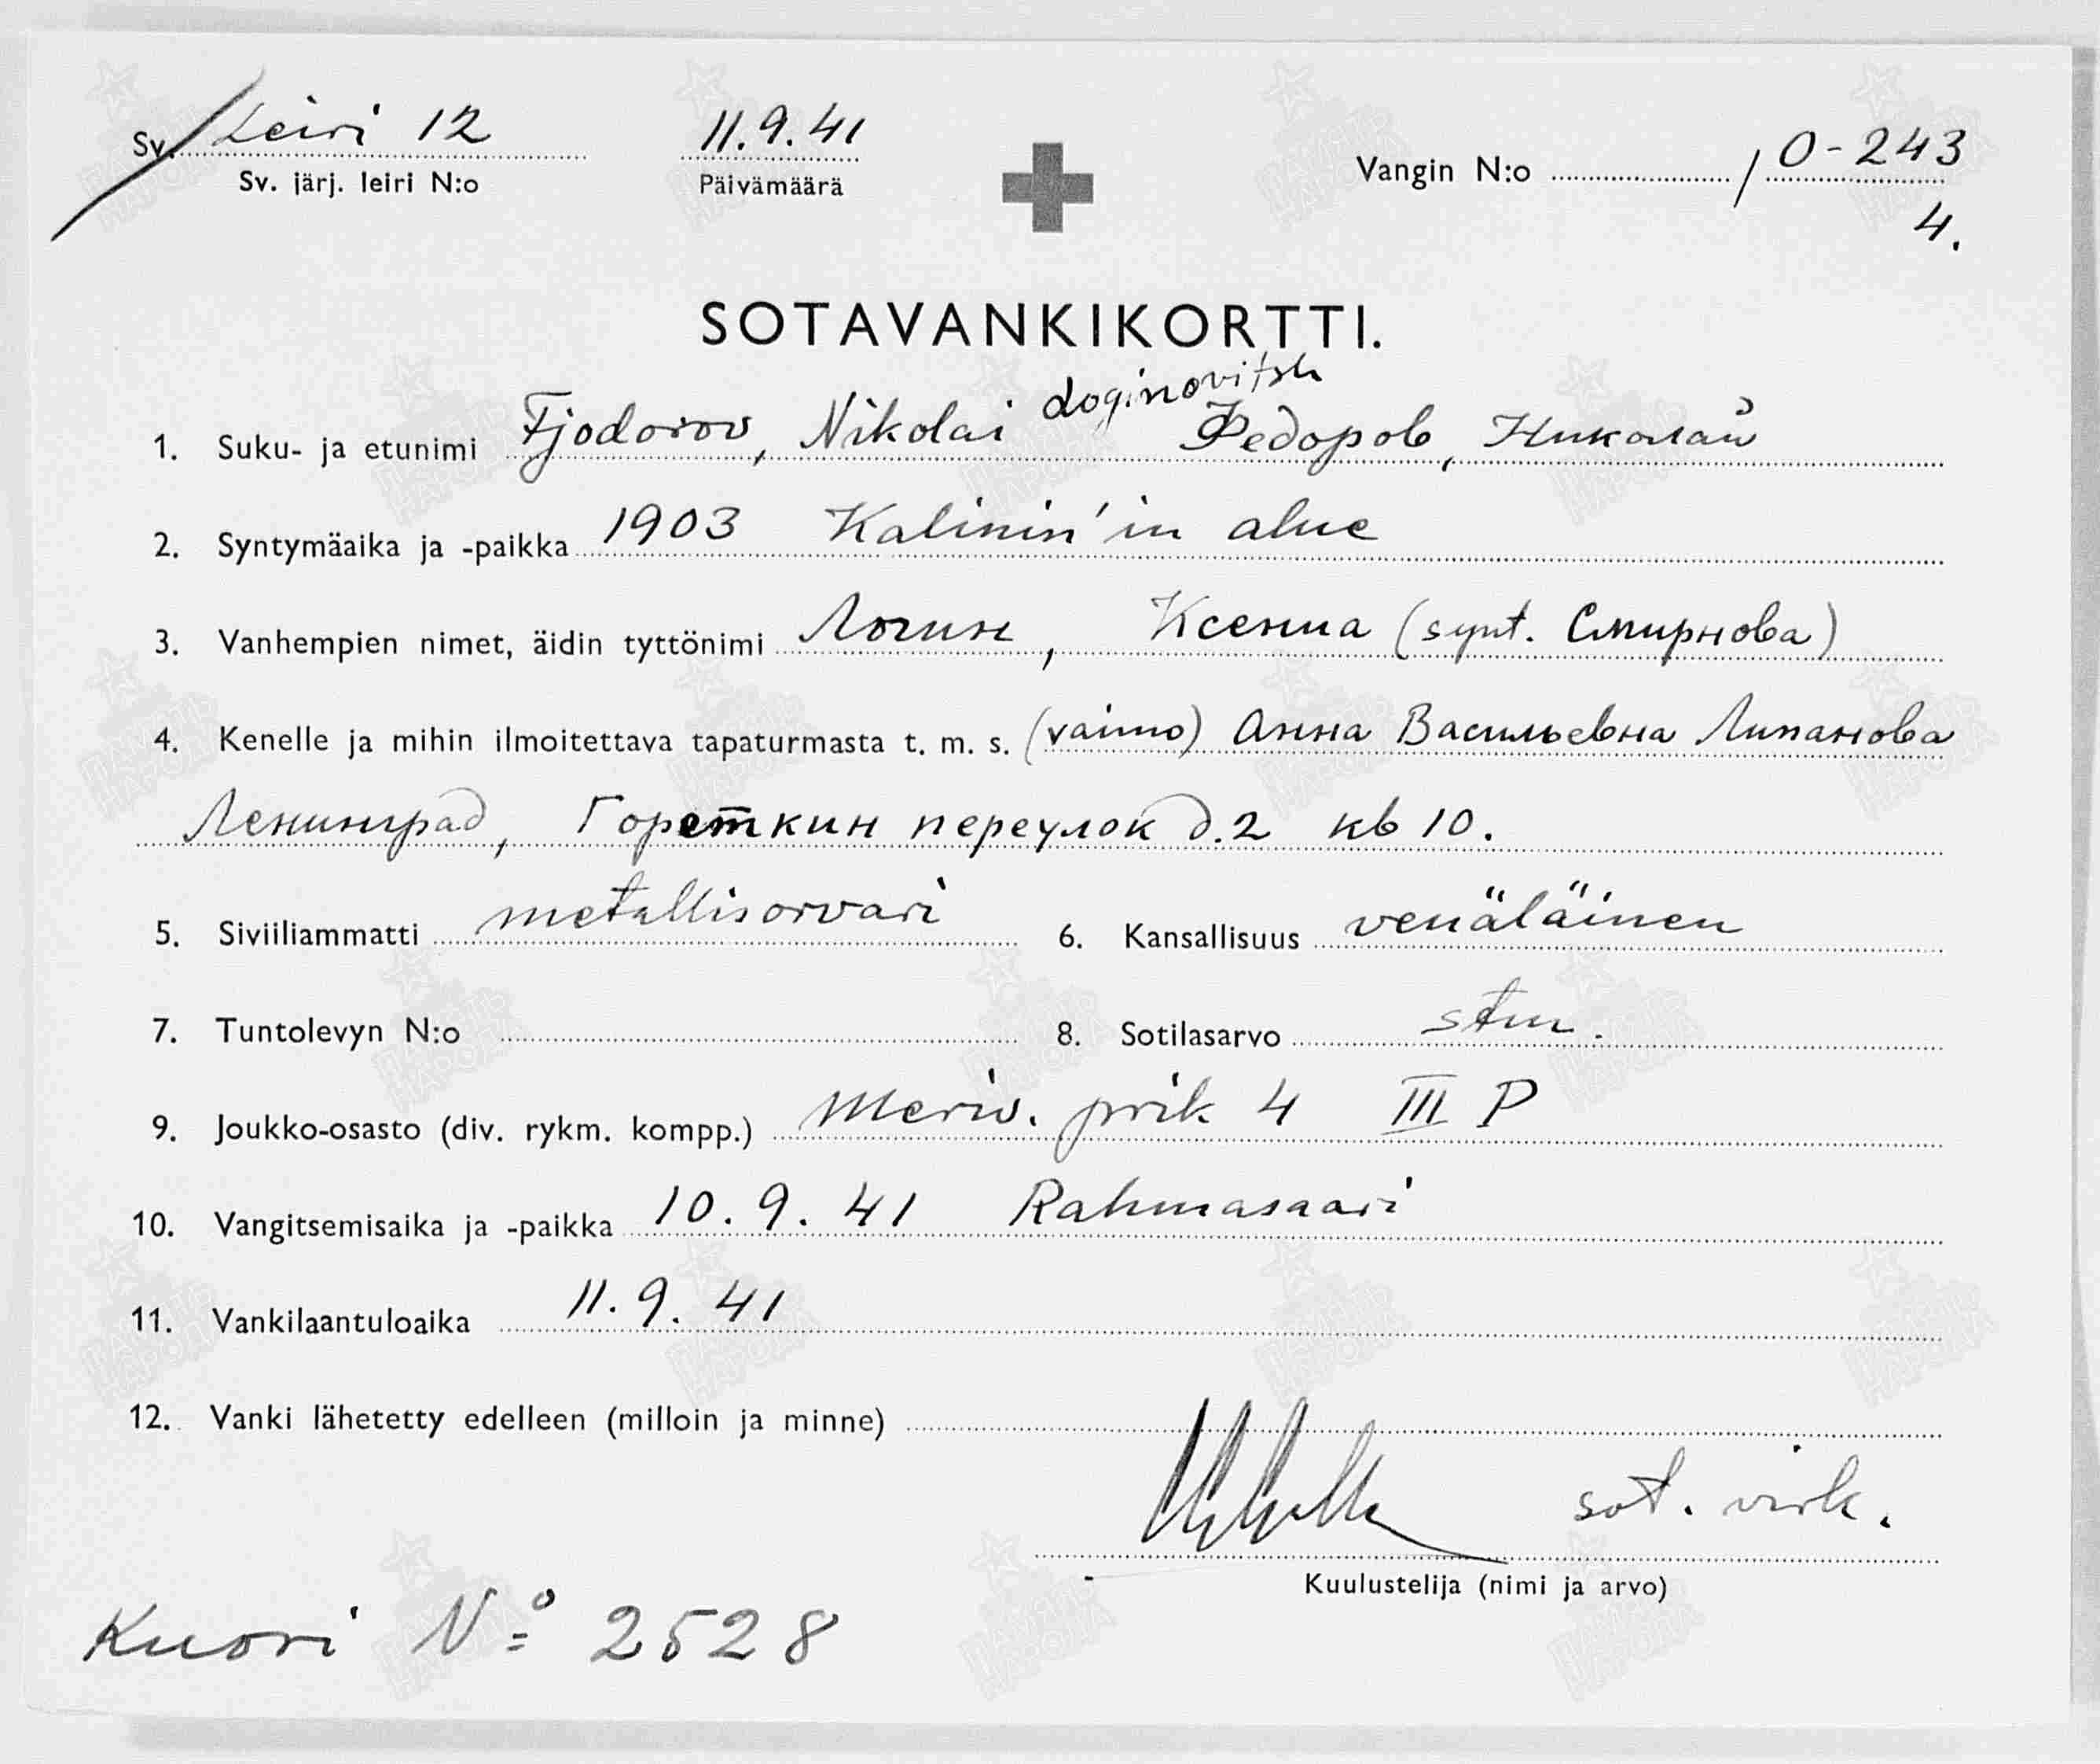 Sv. Leiri 12 11.9.41 Vangin N:o / 0-243
Sv. järj. leiri N:o Päivämäärä 4.
SOTAVANKIKORTTI.
doginovitsh
1. Suku- ja etunimi Fjodorov, Nikolai Федоров, Николай
2. Syntymäaika ja -paikka 1903 Kalinin'in alue
3. Vanhempien nimet, äidin tyttönimi Логин, Ксения (synt. Смирнова)
4. Kenelle ja mihin ilmoitettava tapaturmasta t. m. s. (vaimo) Анна Васильевна Липанова
Ленинград, Гореткин переулок д.2 кв 10.
5. Siviiliammatti metallisorvari 6. Kansallisuus venäläinen
7. Tuntolevyn N:o 8. Sotilasarvo stm.
9. Joukko-osasto (div. rykm. kompp.) Meriv. prik 4 III P
10. Vangitsemisaika ja -paikka 10.9.41 Rahmasaari
11. Vankilaantuloaika 11.9.41
12. Vanki lähetetty edelleen (milloin ja minne)
sot. virk.
Kuulustelija (nimi ja arvo)
Kuori Nº 2528